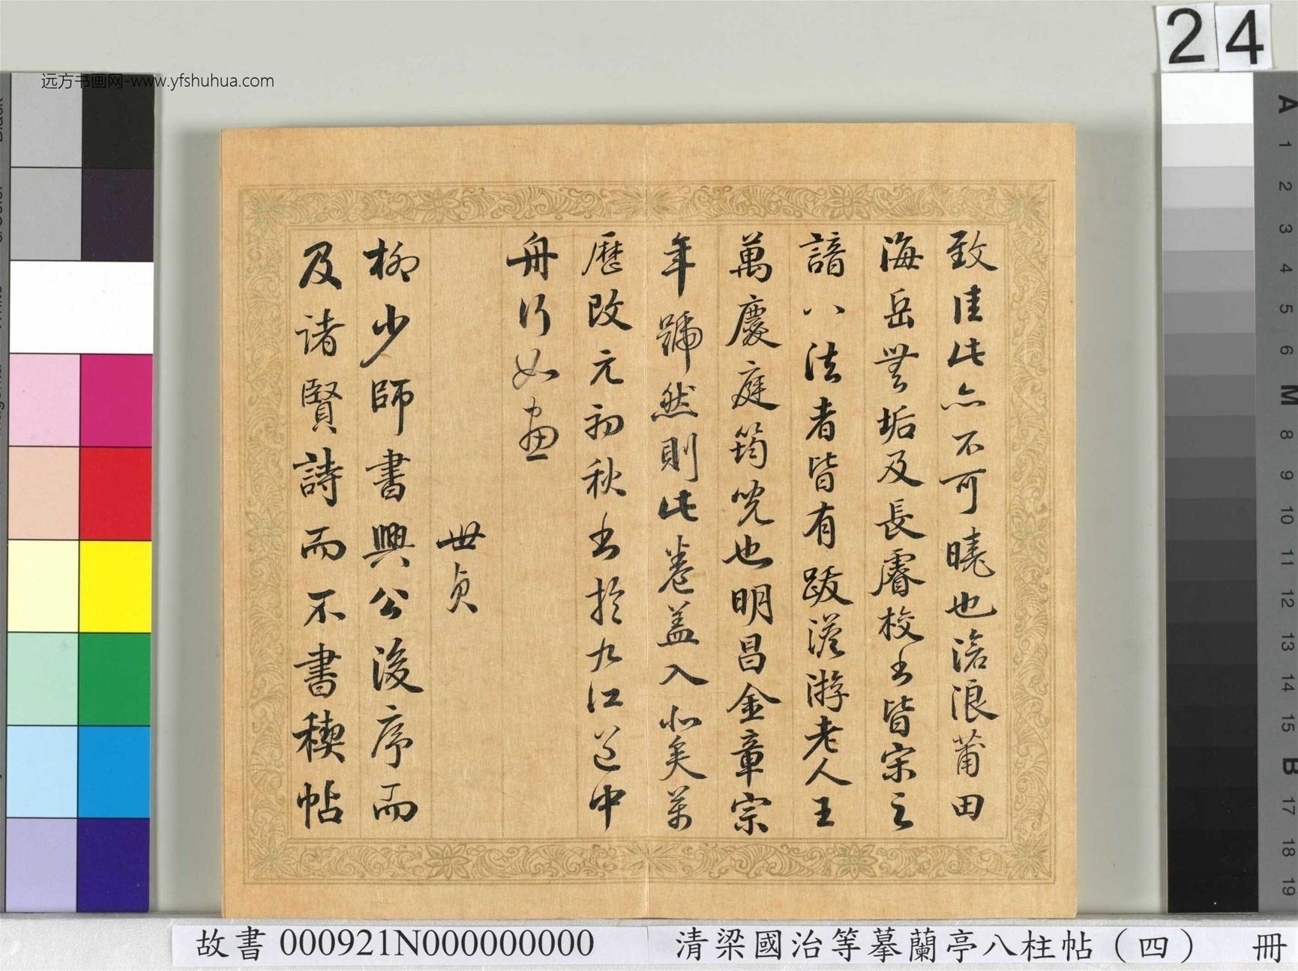 远方书画网-www.yfshuhua.com
24
致佳此亦不可曉也滄浪莆田
海岳無垢及長睿校書皆宋之
諳八法者皆有跋滏游老人王
萬慶庭筠兒也明昌金章宗
年號然則此卷蓋入北矣萬
歷改元初秋書於九江道中
舟行如畫
世貞
柳少師書興公後序而
及諸賢詩而不書稧帖
A 1 2 3 4 5 6 M 8 9 10 11 12 13 14 15 B 17 18 19
故書 000921N000000000
清梁國治等摹蘭亭八柱帖(四) 冊